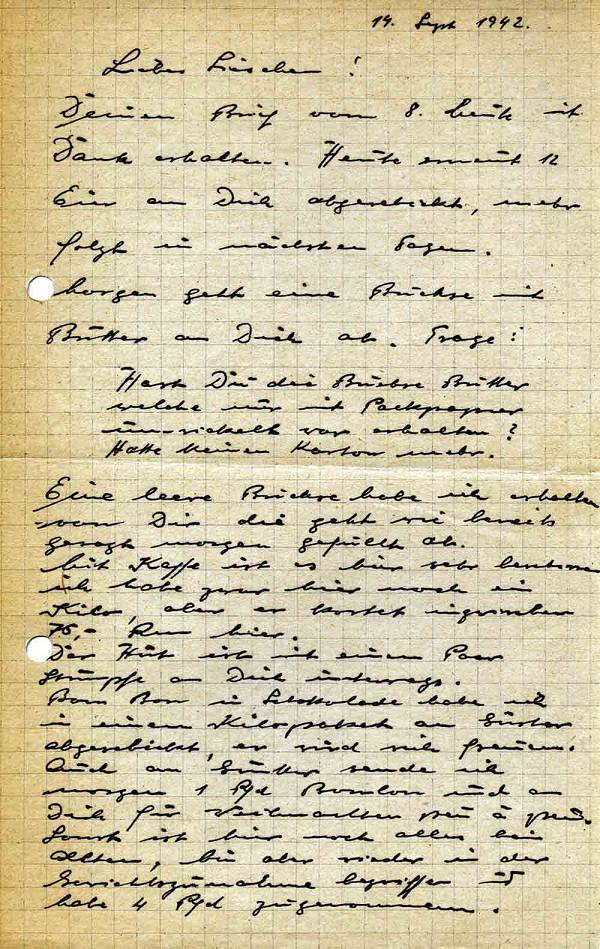 14. Sept 1942.
Liebes Lieschen !
Deinen Brief vom 8. heute mit
Dank erhalten. Heute erneut 12
Eier an Dich abgeschickt, mehr
folgt in nächsten Tagen.
Morgen geht eine Büchse mit
Butter an Dich ab. Frage :
Hast Du die Büchse Butter
welche nur mit Packpapier
umwickelt war erhalten ?
Hatte keinen Karton mehr.
Eine leere Büchse habe ich erhalten
von Dir die geht wie bereits
gesagt morgen gefüllt ab.
Mit Kaffe ist es hier sehr
ich habe zwar hier noch ein
Kilo, aber er kostet inzwischen
75,- Rm hier.
Der Hut ist mit einem Paar
Strümpfe an Dich unterwegs.
Bon Bon in Schokolade habe ich
in einem Kilopaket an
abgeschickt, er wird sich freuen.
Auch an sende ich
morgen 1 Pfd Bonbon und an
Dich für Weihnachten peu à peu.
Sonst ist hier noch alles beim
Alten, bin aber wieder in der
Gewichtszunahme begriffen u
habe 4 Pfd zugenommen.